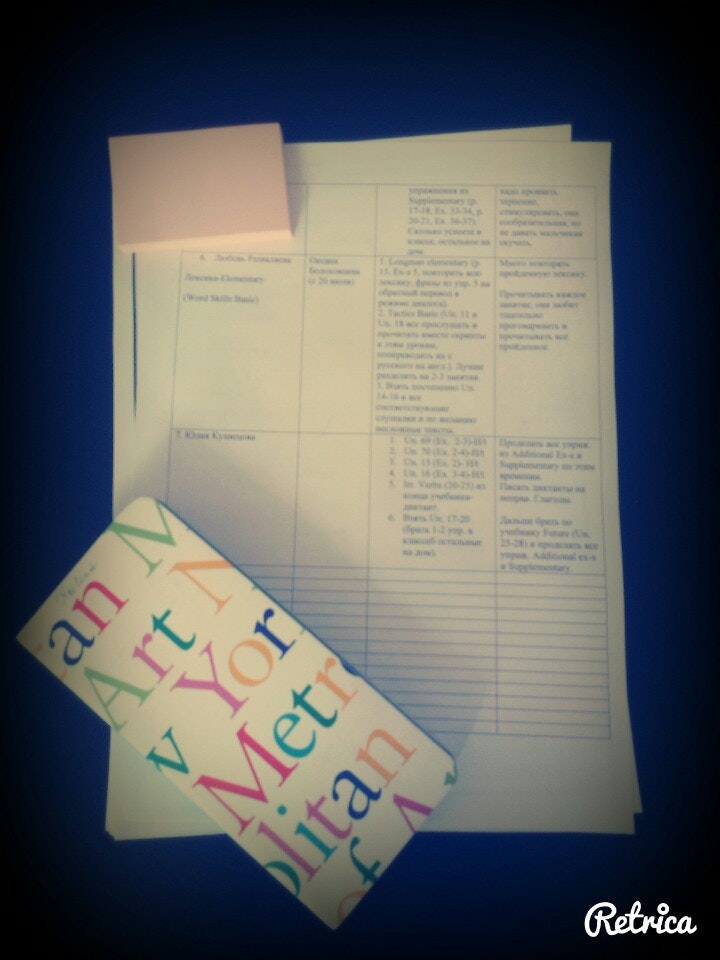 упражнения из
Supplementary (p.
17-18, Ex. 33-34, p.
20-21, Ex. 36-37).
Сколько успеете в
классе, остальное на
дом.
надо проявить
терпение,
стимулировать, она
сообразительная, но
не давать мальчикам
скучать.
6. Любовь
Лексика-Elementary
(Word Skills Basic)
Оксана
(с 20 июля)
1. Longman elementary (p.
15, Ex-s 5, повторить всю
лексику, фразы из упр. 5 на
обратный перевод в
режиме диалога).
2. Tactics Basic (Un. 11 и
Un. 18 все прослушать и
прочитать вместе скрипты
к этим урокам,
попереводить их с
русского на англ.). Лучше
разделить на 2-3 занятия.
3. Взять постепенно Un.
14-16 и все
соответствующие
слушалки и по желанию
несложные тексты.
Много повторять
пройденную лексику.
Прочитывать каждое
занятие, она любит
тщательно
проговаривать и
прочитывать все
пройденное.
7. Юлия Кузнецова
1. Un. 69 (Ex. 2-3)-Н/t
2. Un. 70 (Ex. 2-4)-Н/t
3. Un. 15 (Ex. 2)- Н/t
4. Un. 16 (Ex. 3-4)-Н/t
5. Irr. Verbs (20-25) из
конца учебника-
диктант.
6. Взять Un. 17-20
(брать 1-2 упр. в
классе, остальные
на дом).
Проделать все упраж.
из Additional Ex-s и
Supplementary по этим
временам.
Писать диктанты на
неправ. Глаголы.
Дальше брать по
учебнику Future (Un.
25-28) и проделать все
упраж. Additional ex-s
и Supplementary.
an M
Art N
w Yor
Metro
olitan
of A
Retrica